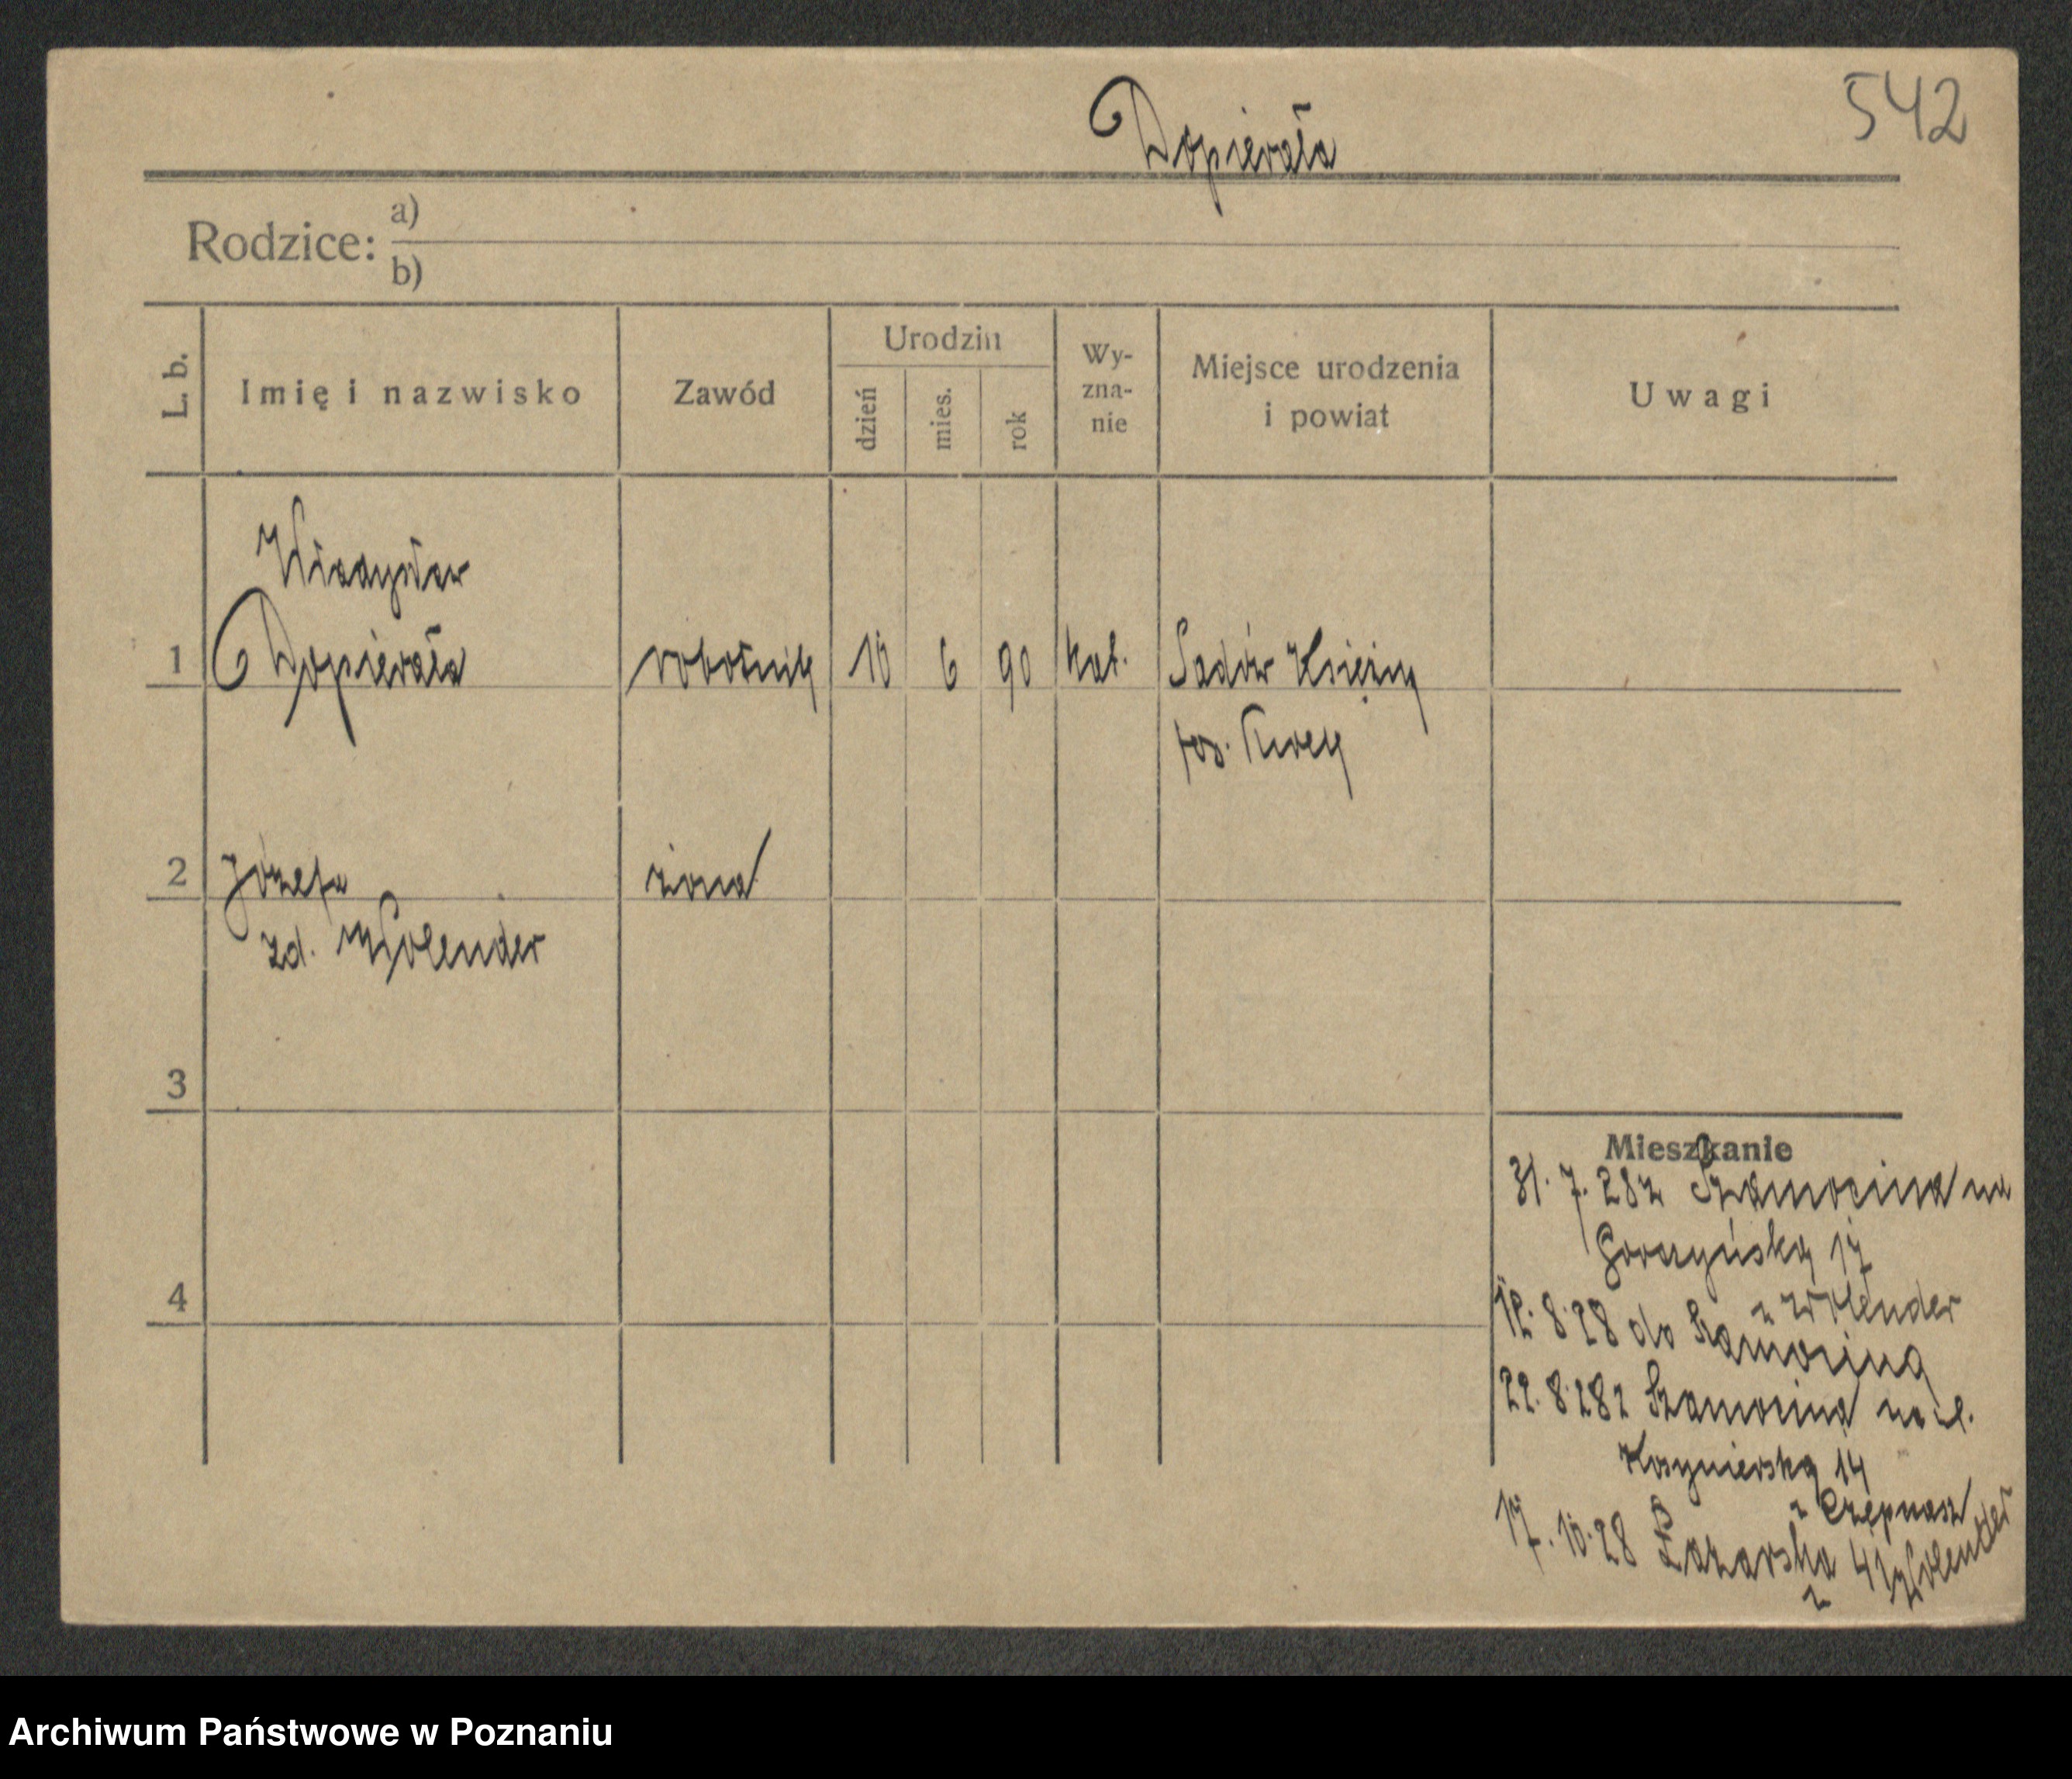 542
Dopierała
Rodzice: a)
b)
L. b. Imię i nazwisko Zawód Urodzin dzień mies. rok Wy-zna-nie Miejsce urodzenia i powiat Uwagi
Władysław
1 Dopierała robotnik 10 6 90 kat. Sadów Księży
2 Józefa żona
zd. Wolender
3
Mieszkanie
31. 7. 28 z Szamocina na
Gorczyńską 17
4 z Wolender
12. 8 28 do Szamocina
22. 8 28 z Szamocina na ul.
Kosynierską 14
17. 10. 28 Łazarska 41
z Wolender
Archiwum Państwowe w Poznaniu